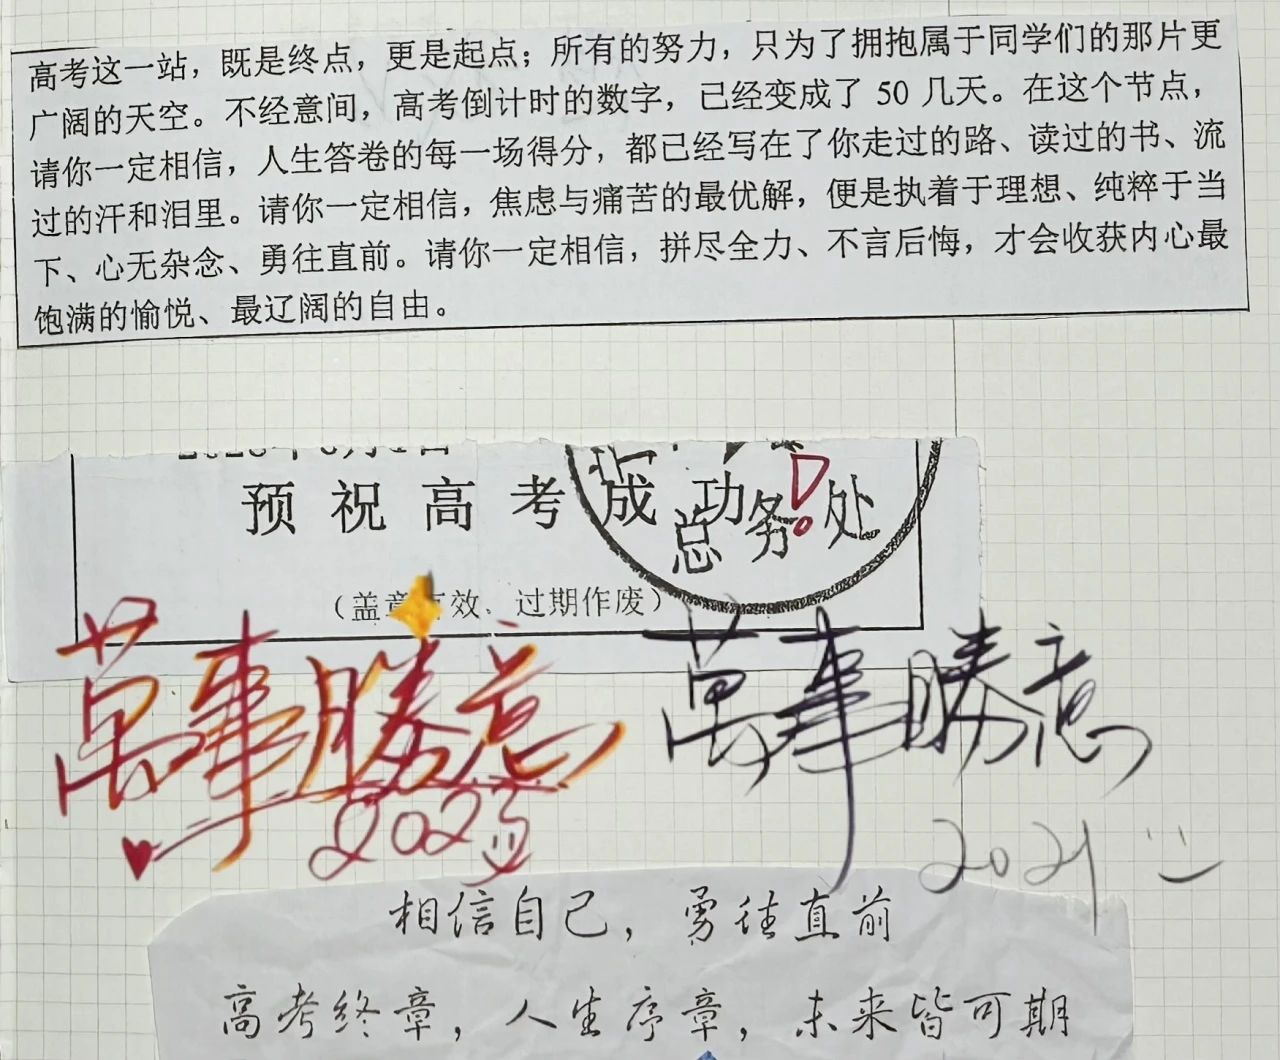 高考这一站，既是终点，更是起点；所有的努力，只为了拥抱属于同学们的那片更
广阔的天空。不经意间，高考倒计时的数字，已经变成了 50 几天。在这个节点，
请你一定相信，人生答卷的每一场得分，都已经写在了你走过的路、读过的书、流
过的汗和泪里。请你一定相信，焦虑与痛苦的最优解，便是执着于理想、纯粹于当
下、心无杂念、勇往直前。请你一定相信，拼尽全力、不言后悔，才会收获内心最
饱满的愉悦、最辽阔的自由。
预祝高考成功！
总务处
（盖章有效、过期作废）
萬事勝意
2023
萬事勝意
2021
相信自己，勇往直前
高考终章，人生序章，未来皆可期